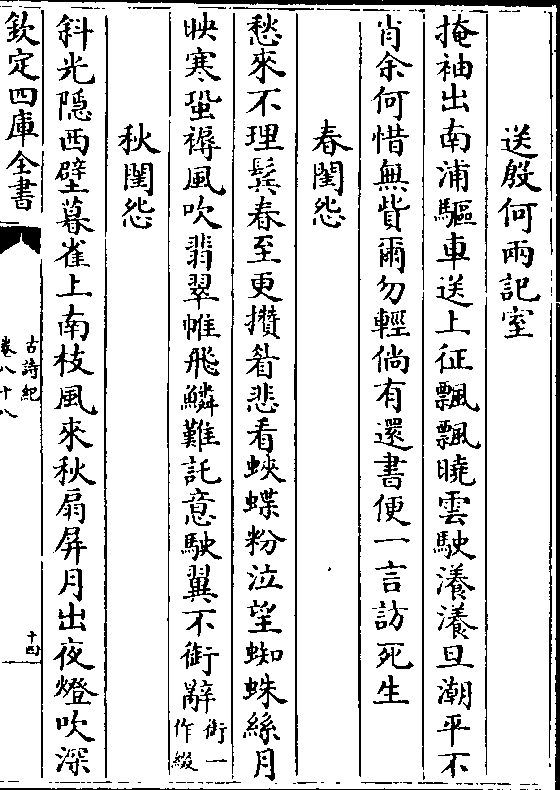 送殷何兩記室
掩袖出南浦驅車送上征飄飄曉雲駛瀁瀁旦潮平不
肖余何惜無貲爾勿輕倘有還書便一言訪死生
春閨怨
愁來不理鬂春至更攢眉悲看蛺蝶粉泣望蜘蛛絲月
映寒蛩褥風吹翡翠帷飛鱗難託意駛翼不銜辭銜一作綴
秋閨怨
斜光隱西壁暮雀上南枝風來秋扇屏月出夜燈吹深
欽定四庫全書
古詩紀
卷八十八
十四